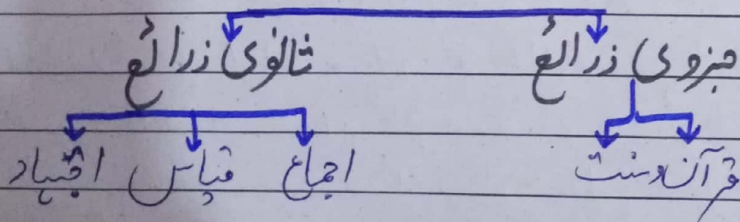 جزوی ذرائع ثانوی ذرائع
قرآن وسنت اجماع قیاس اجتہاد